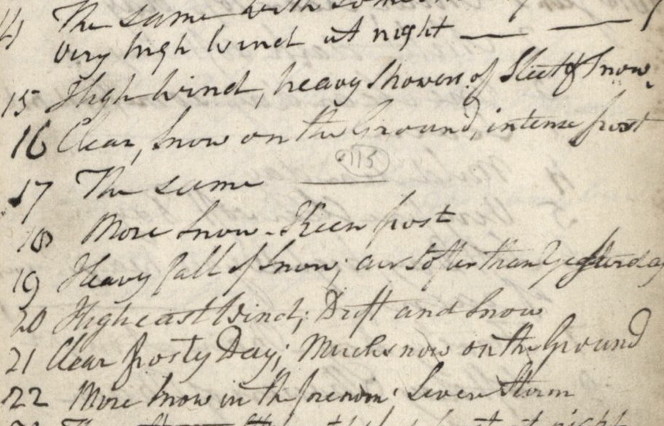 14 The same with some
very high Wind at night
15 High wind, heavy showers of Sleet & Snow.
16 Clear, Snow on the Ground, intense frost
115
17 The same
18 More Snow - Keen frost
19 Heavy fall of Snow; air softer than Yesterday
20 High east Wind; Drift and Snow
21 Clear frosty Day; Much snow on the Ground
22 More Snow in the forenn: Seven Storm
at night